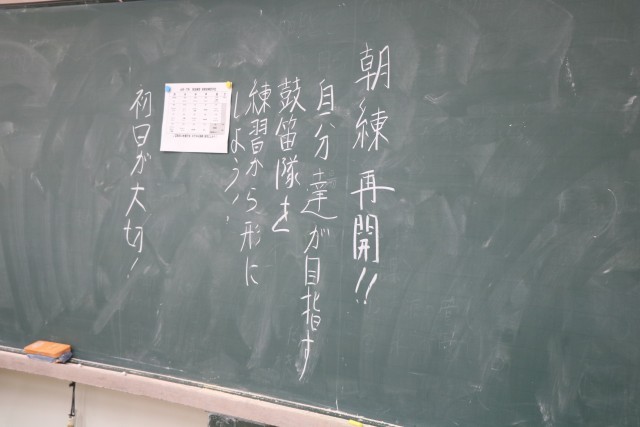 朝練再開!!
自分達が目指す
鼓笛隊を
練習から形に
しよう!
初日が大切!